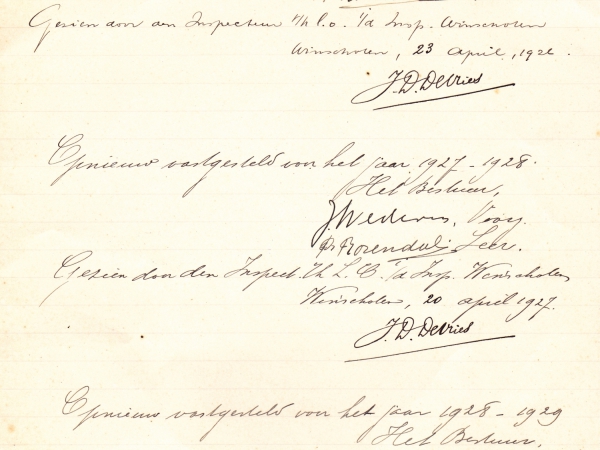 Gezien door den Inspecteur v/h l.o. i/d Insp. Winschoten
Winschoten, 23 april, 1926.
J. D. De Vries
Opnieuw vastgesteld voor het jaar 1927-1928.
Het Bestuur,
Voorz.
R. Rozendal, Secr.
Gezien door den Inspect. v/h L. O. i/d Insp. Winschoten
Winschoten, 20 april 1927.
J. D. De Vries
Opnieuw vastgesteld voor het jaar 1928-1929
Het Bestuur,